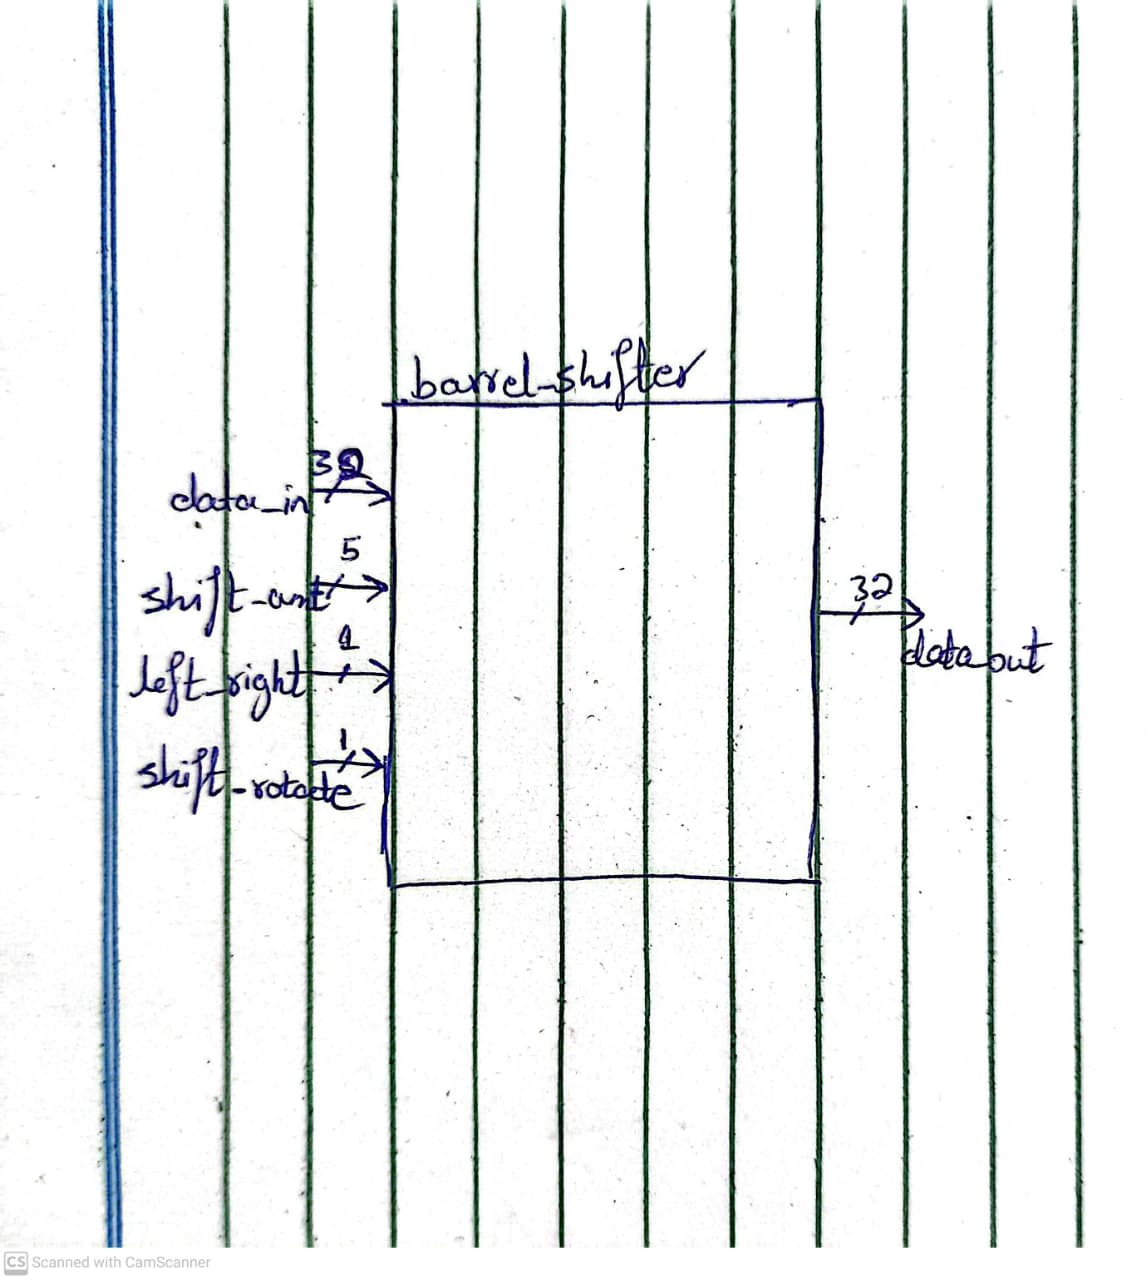 barrel_shifter
32
data_in
5
shift_amt
1
left_right
1
shift_rotate
32
data_out
CS Scanned with CamScanner